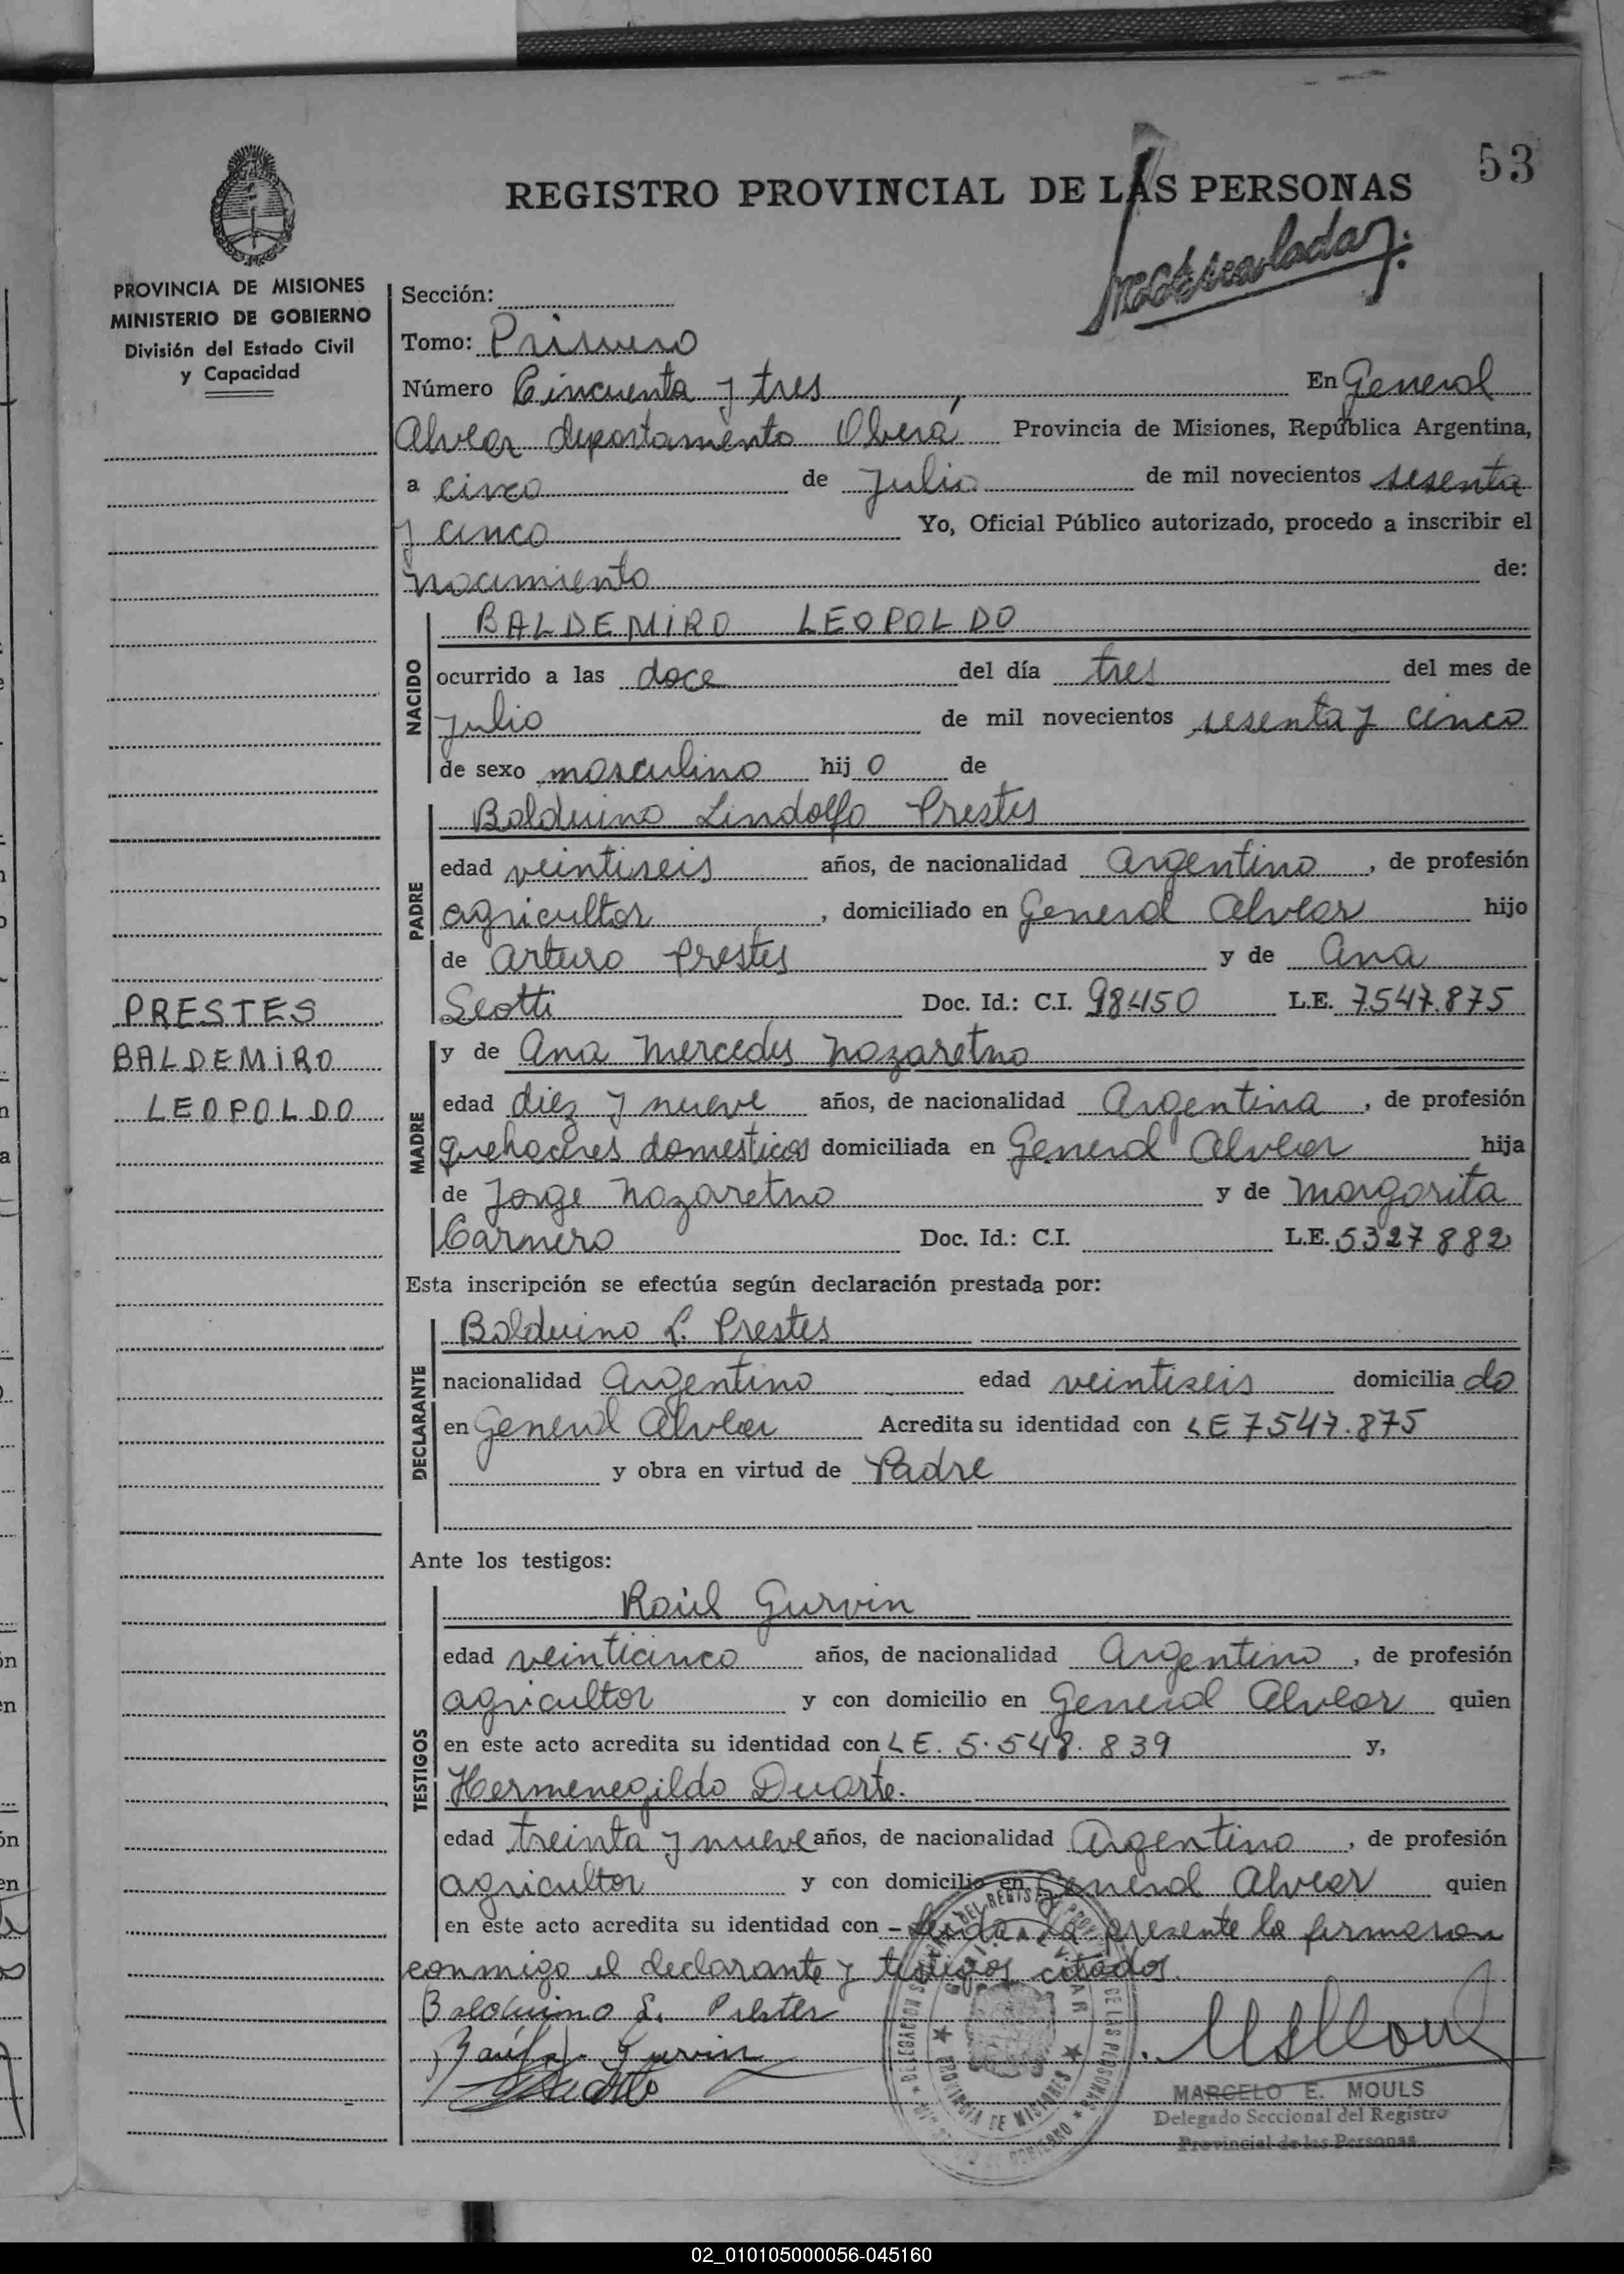 53
REGISTRO PROVINCIAL DE LAS PERSONAS
PROVINCIA DE MISIONES
MINISTERIO DE GOBIERNO
División del Estado Civil
y Capacidad
PRESTES
BALDEMIRO
LEOPOLDO
Sección:
Tomo: Primero
Número Cincuenta y tres En General
Alvear departamento Oberá Provincia de Misiones, República Argentina,
a cinco de Julio de mil novecientos sesenta
y cinco Yo, Oficial Público autorizado, procedo a inscribir el
nacimiento de:
NACIDO
BALDEMIRO LEOPOLDO
ocurrido a las doce del día tres del mes de
Julio de mil novecientos sesenta y cinco
de sexo masculino hijo de
PADRE
Balduino Lindolfo Prestes
edad veintiseis años, de nacionalidad Argentino, de profesión
agricultor, domiciliado en General Alvear hijo
de Arturo Prestes y de Ana
Scotti Doc. Id.: C.I. 98450 L.E. 7.547.875
MADRE
y de Ana Mercedes Nazaretno
edad diez y nueve años, de nacionalidad Argentina, de profesión
quehaceres domesticos domiciliada en General Alvear hija
de Jorge Nazaretno y de Margarita
Carnero Doc. Id.: C.I. L.E. 5327882
Esta inscripción se efectúa según declaración prestada por:
DECLARANTE
Balduino L. Prestes
nacionalidad Argentino edad veintiseis domiciliado
en General Alvear Acredita su identidad con LE 7547.875
y obra en virtud de Padre
Ante los testigos:
TESTIGOS
Raúl Gurvin
edad veinticinco años, de nacionalidad Argentino, de profesión
agricultor y con domicilio en General Alvear quien
en este acto acredita su identidad con LE. 5.548.839 y,
Hermenegildo Duarte.
edad treinta y nueve años, de nacionalidad Argentino, de profesión
agricultor y con domicilio en General Alvear quien
en este acto acredita su identidad con - Leida la presente la firmaron
conmigo el declarante y testigos citados.
Balduino L. Prestes
Gurvin
MARCELO E. MOULS
Delegado Seccional del Registro
Provincial de las Personas
02_010105000056-045160